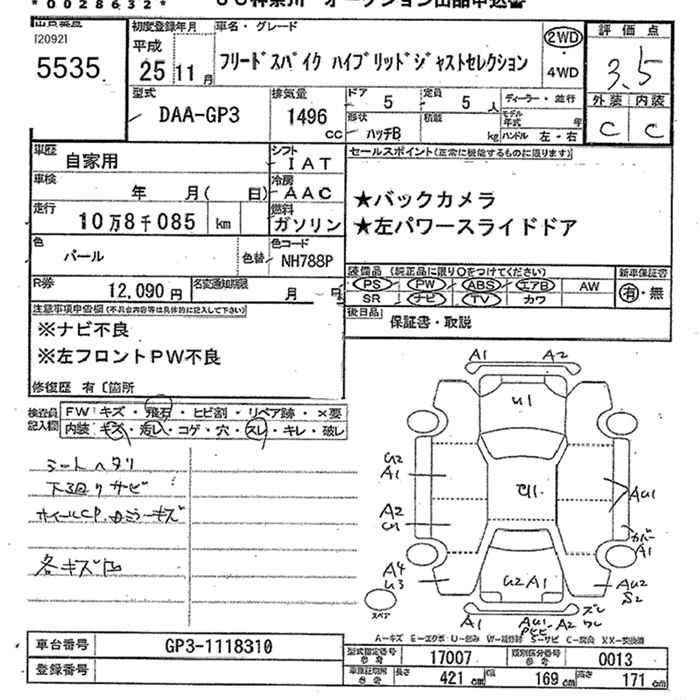 *0028632*
出品番号 初度登録年月 車名・グレード 評価点
[2092] 平成 2WD
5535 25年11月 フリードスパイク ハイブリッドジャストセレクション 4WD 3.5
外装 内装
C C
型式 排気量 ドア 定員 ディーラー・並行
DAA-GP3 1496cc 5 5人 モデル年式 年
形状 積載
ハッチB kg ハンドル 左・右
車歴 自家用 シフト IAT セールスポイント(正常に機能するものに限ります)
車検 年 月( 日) 冷房 AAC ★バックカメラ
走行 10万8千085 km 燃料 ガソリン ★左パワースライドドア
色 パール 色替 色コード NH788P
装備品(純正品に限り○をつけてください) 新車保証書
PS PW ABS エアB AW 有・無
SR ナビ TV カワ
R券 12,090円 名変通知期限 月 日
後日品 保証書・取説
注意事項申告欄(不具合内容等は具体的に記入して下さい)
※ナビ不良
※左フロントPW不良
修復歴 有〔箇所
検査員記入欄 FW キズ・飛石・ヒビ割・リペア跡・×要
内装 キズ・汚れ・コゲ・穴・スレ・キレ・破レ
シートヘタリ
下廻りサビ
ホイールCP
各キズ凹
A1 A2
U1
U2
A1
A2
U1
C1.
AU1
カバー
A1
A4
U3
U2A1
AU2
S2
スペア
A1 AU1 A2
A-キズ E-エクボ U-凹み W-補修跡 S-サビ C-腐食 XX-交換済
車台番号 GP3-1118310
登録番号
型式指定番号 参考 17007 類別区分番号 参考 0013
車庫証明用 参考 長さ 421cm 幅 169cm 高さ 171cm